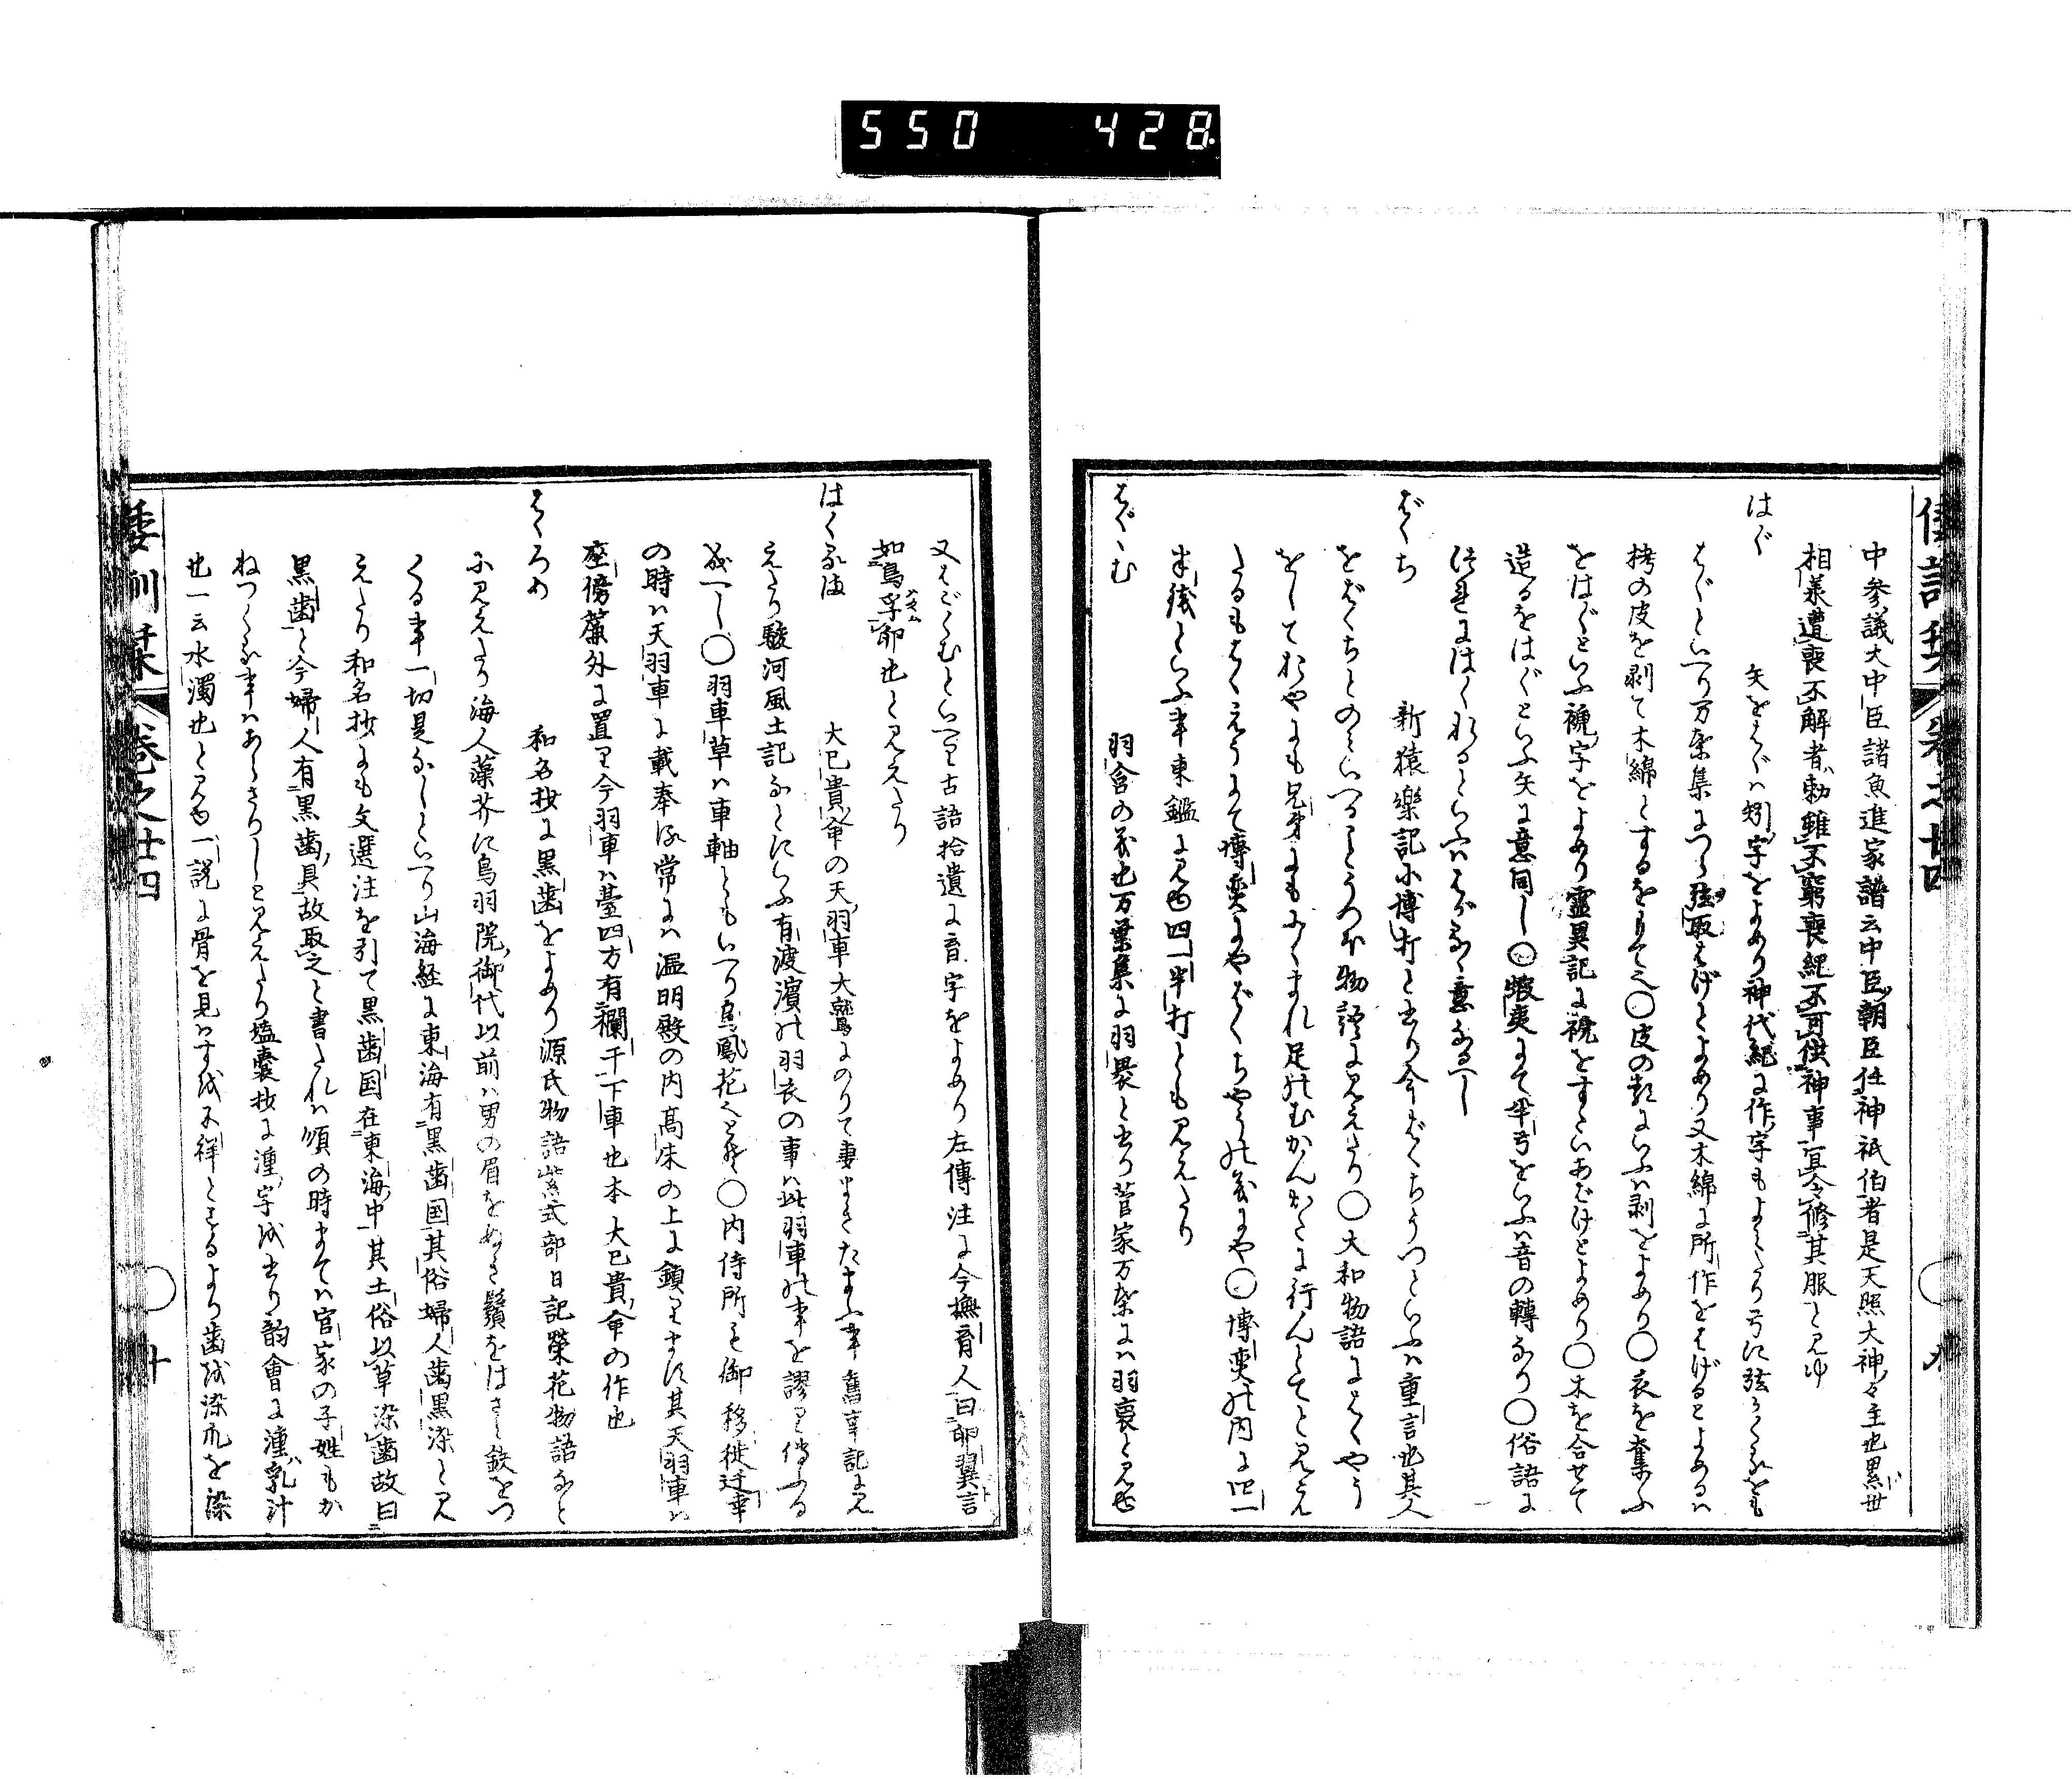 550 428
中参議大中臣諸魚進家譜云中臣朝臣任神祇伯者是天照大神々主也累世
相承遭喪不解者勅雖不窮喪紀不可供神事宜令修其服と見ゆ
はぐ 矢をはぐハ矧字をよめり神代紀に作字もよめり弓に弦かくるをも
はぐといへり万葉集につら弦取はげとよめり又木綿に所作をはげるとよめるハ
栲の皮を剥て木綿とするをもて也〇皮の類にいふハ剥をよめり〇衣を奪ふ
をはぐといふ褫字をよめり霊異記に褫をすといあばけとよめり〇木を合せて
造るをはぐといふ矢に意同し〇蝦夷にて半弓をいふハ音の轉なり〇俗語に
はくれるといふハはぐるゝ意なるへし
ばくち 新猿樂記に博打と書り今ばくちうつといふハ重言也其人
をばくちとのみいへることうつほ物語に見えたり〇大和物語にはくやう
をしておやにも兄弟にもにくまれ足のむかんかたに行んとてと見え
たるもはくえうにて博奕にやばくちやうの義にや〇博奕の内に四一
半銭といふ事東鑑に見ゆ四一半打とも見えたり
はぐゝむ 羽含の義也万葉集に羽褁と書り菅家万葉にハ羽裹と見ゆ
又はごくむといへり古語拾遺に育字をよめり左傳注に今撫育人曰卵翼言
如鳥孚卵也と見えたり
はくるま 大己貴命の天羽車大鷲にのりて妻まきたまふ事旧事記に見
えたり駿河風土記なとにいふ有渡濱の羽衣の事ハ此羽車の事を謬り傳ふる
成へし〇羽車草ハ車軸ともいへり鳳花也とそ〇内侍所を御移徙遷車
の時ハ天羽車に載奉る常にハ温明殿の内高床の上に鎮ります其天羽車ハ
座傍簾外に置り今羽車ハ臺四方有欄干下車也本大己貴命の作也
はくろめ 和名抄に黒歯をよめり源氏物語紫式部日記榮花物語なと
に見えたり海人藻芥に鳥羽院御代以前ハ男の眉をぬき鬚をはさみ鉄をつ
くる事一切是なしといへり山海経に東海有黒歯国其俗婦人歯黒染と見
えたり和名抄にも文選注を引て黒歯国在東海中其土俗以草染歯故曰
黒歯と今婦人有黒歯具故取之と書たれハ順の時まてハ官家の子姓もか
ねつくる事ハあらさりしと見えたり壒囊抄に湩字を書り韵會に湩乳汁
也一云水濁也と見ゆ一説に骨を見ハす祓不祥とせるより歯を染爪を染
倭訓栞 巻之廿四 〇 九
倭訓栞 巻之廿四 〇 十